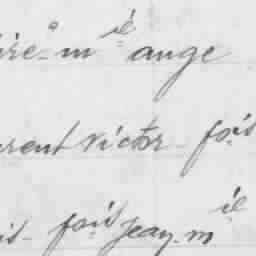 ire - m ie ange
urent victor - fois
is - fois jean. m ie